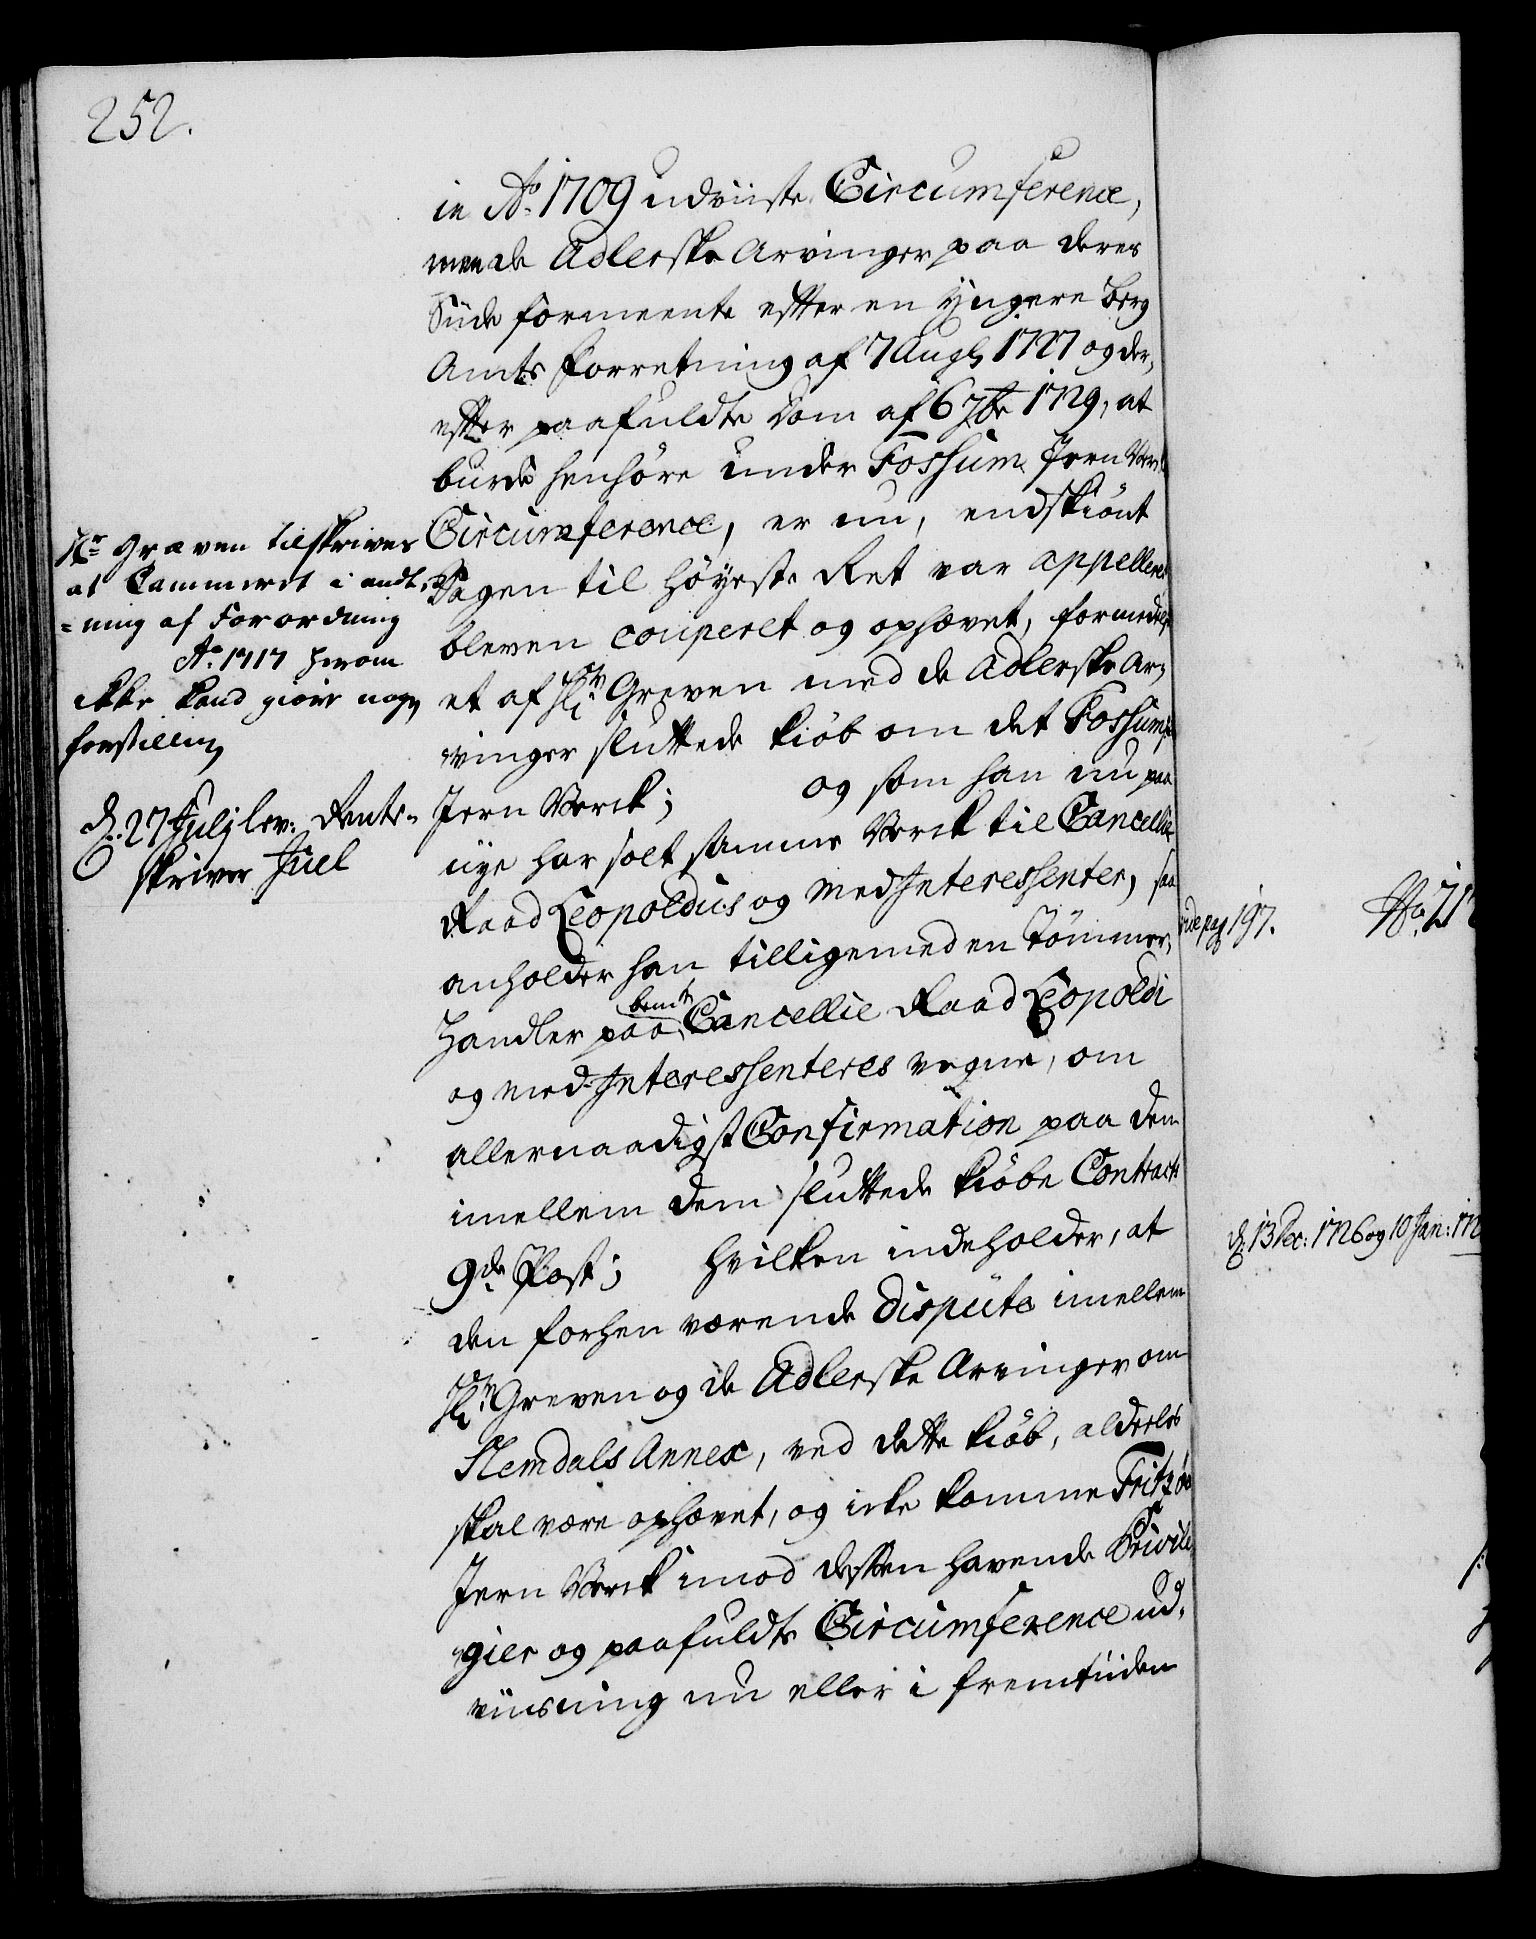 252.
in Ao. 1709 udviiste Circumference,
men de Adlerske Arvinger paa deres
Siide formeente efter en yngere Berg
Amts Forretning af 7 Aug: 1727 og der,
efter paafuldte Dom af 6 7br 1729, at
burde henhøre under Fossum Jern Verks
Circumference, er nu, endskiønt
Sagen til Høyeste Ret var appelleret
bleven couperet og ophævet, formedelst
et af Hr. Greven med de Adlerske Ar,
vinger sluttede Kiøb om det Fossums
Jern Verck; og som han nu paa
nye har solt samme Verck til Cancellie
Raad Leopoldus og Med Interessenter, saa
anholder han tilligemed en Tømmer,
Handler paa bemte Cancellie Raad Leopoldi
og Med-Interessenteres vegne, om
allernaadigst Confirmation paa den
imellem dem sluttede Kiøbe Contracts
9de Post; hvilken indeholder, at
den forhen værende Dispüte imellem
Hr. Greven og de Adlerske Arvinger om
Slemdals Annex, ved dette Kiøb, aldeeles
skal være ophævet, og icke komme Fritzøe
Jern Verck imod dessen havende Privile,
gier og paafuldte Circumference ud,
viisning nu eller i fremtiiden
Hr. Græven tilskrives
at Cammeret i andl.
=ning af Forordning
Ao. 1717 herom
ikke kand giøre nogen
forstilling
d. 27 Julj lev. Rente-
skriver Juel
vide pag 197.
No. 21
d. 13 Dec: 1726 og 10 Jan: 172